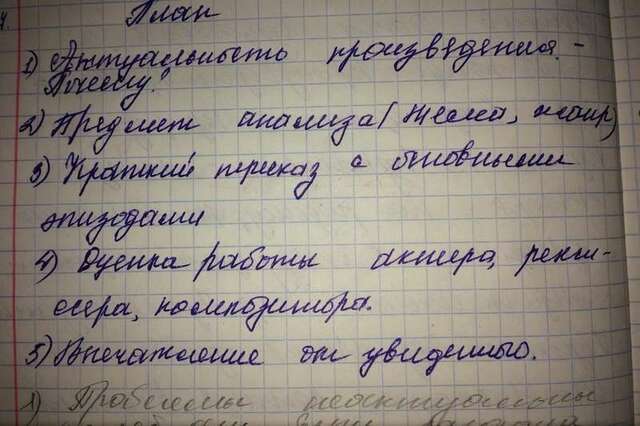 План
1) Актуальность произведения. -
Почему?
2) Предмет анализа (тема, жанр)
3) Краткий пересказ с основными
эпизодами
4) Оценка работы актера, режис-
сера, композитора.
5) Впечатление от увиденного.
1) Проблемы неактуальны